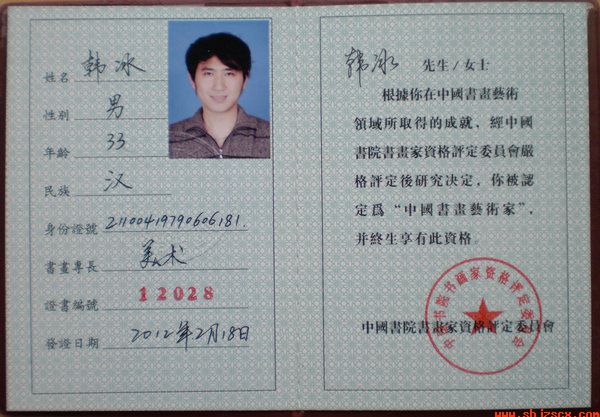 姓名 韩冰
性別 男
年齡 33
民族 汉
身份證號 21100419790606181.
書畫專長 美术
證書編號 12028
發證日期 2012年2月18日
韩冰 先生/女士
根據你在中國書畫藝術
領域所取得的成就，經中國
書院書畫家資格評定委員會嚴
格評定後研究决定，你被認
定爲“中國書畫藝術家”，
并終生享有此資格。
中國書院書畫家資格評定委員會
中国书院书画家资格评定委员会
www.shjzscx.com